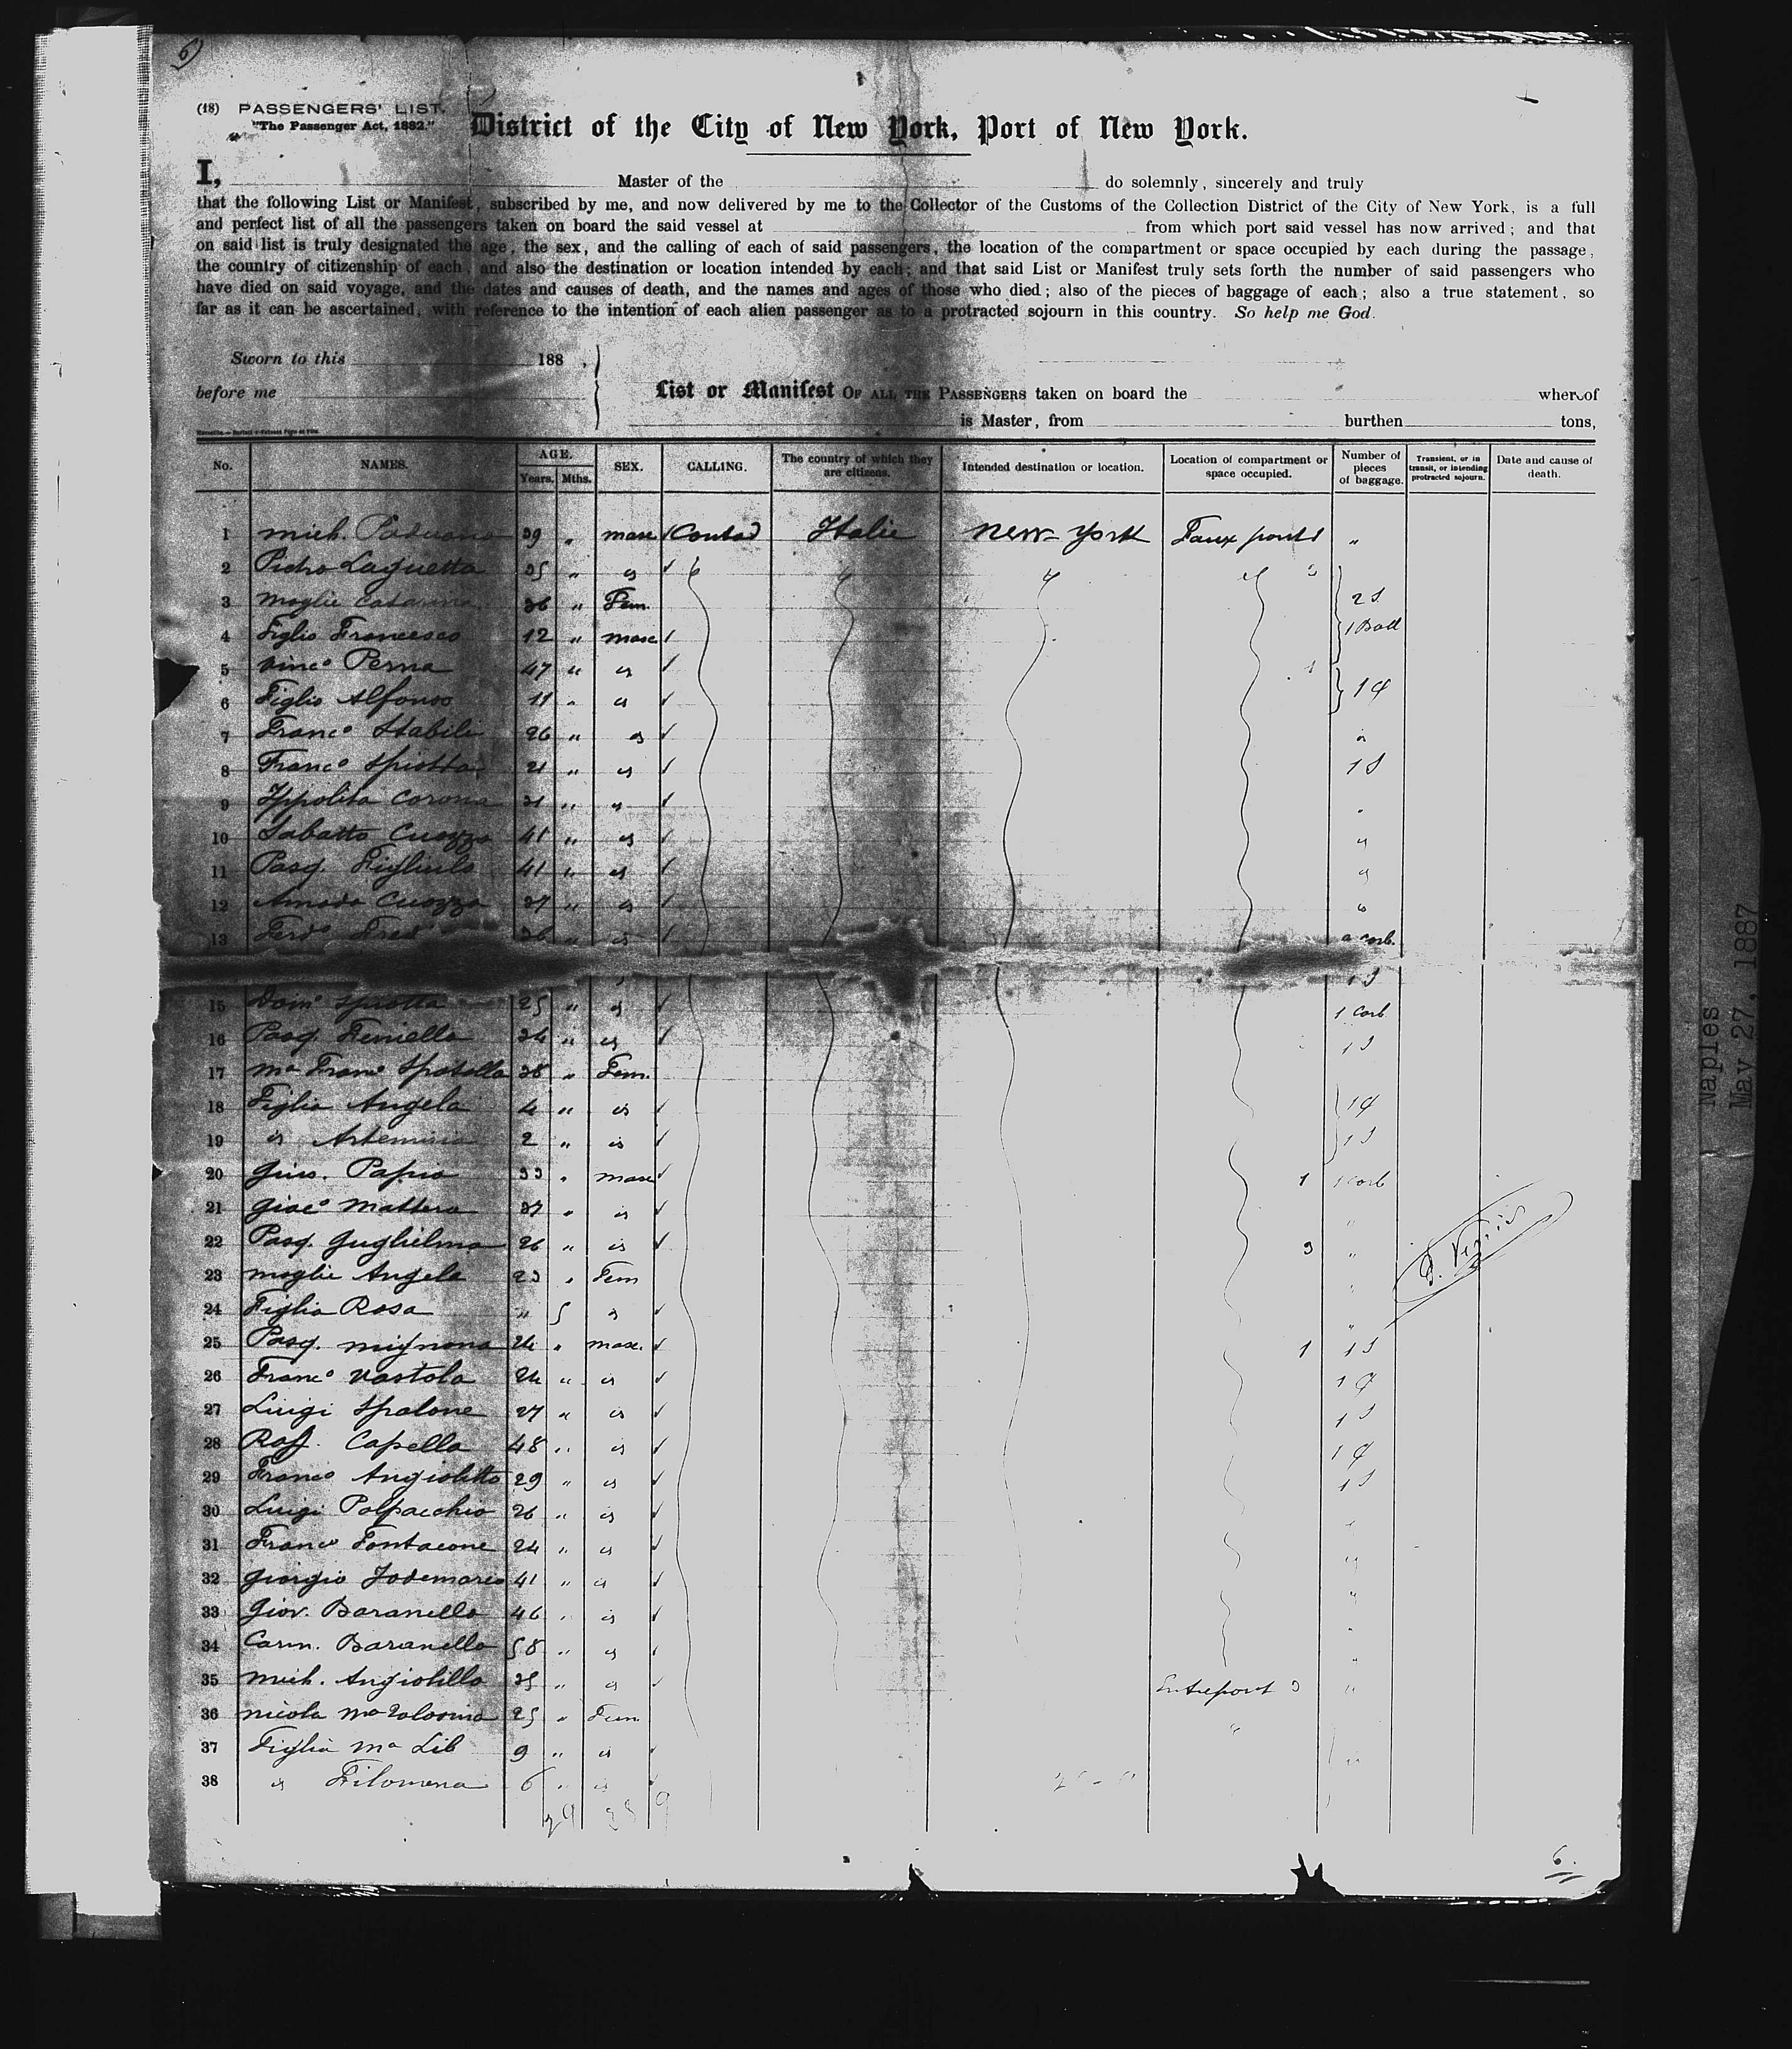 6)
(18) PASSENGERS' LIST.
"The Passenger Act, 1882."
District of the City of New York, Port of New York.
I, Master of the do solemnly, sincerely and truly
that the following List or Manifest, subscribed by me, and now delivered by me to the Collector of the Customs of the Collection District of the City of New York, is a full
and perfect list of all the passengers taken on board the said vessel at from which port said vessel has now arrived; and that
on said list is truly designated the age, the sex, and the calling of each of said passengers, the location of the compartment or space occupied by each during the passage,
the country of citizenship of each, and also the destination or location intended by each; and that said List or Manifest truly sets forth the number of said passengers who
have died on said voyage, and the dates and causes of death, and the names and ages of those who died; also of the pieces of baggage of each; also a true statement, so
far as it can be ascertained, with reference to the intention of each alien passenger as to a protracted sojourn in this country. So help me God.
Sworn to this 188 .
before me
List or Manifest OF ALL THE PASSENGERS taken on board the whereof
is Master, from burthen tons,
No. NAMES. AGE. Years. Mths. SEX. CALLING. The country of which they are citizens. Intended destination or location. Location of compartment or space occupied. Number of pieces of baggage. Transient, or in transit, or intending protracted sojourn. Date and cause of death.
1 Mich. Paduano 39 " masc Contad Italie New-York Faux ponts "
2 Pietro Laguetta 35 " is
3 moglie Catarina 36 " Fem. 2 S
4 Figlio Francesco 12 " masc 1 Ball
5 Vinc° Perna 47 " is
6 Figlio Alfonso 11 " is 1 C
7 Franc° Stabile 26 " is "
8 Franc° Spiotta 21 " is 1 S
9 Ippolito Corona 31 " is "
10 Sabatto Cuozzo 41 " is "
11 Pasq. Figliulo 41 " is "
12 Amado Cuozzo 37 " is "
13 Ferd° 36 " is corb.
1 S
15 Dom° Spiotta 25 " is 1 Corb
16 Pasq. Finiello 34 " is 1 S
17 Ma Franc Spatella 38 " Fem.
18 Figlia Angela 4 " is 1 C
19 is Artemisia 2 " is 1 S
20 Gius. Papio 33 " masc 1 1 Corb
21 Giac° Mattera 37 " is "
22 Pasq. Guglielmo 26 " is 3 "
23 moglie Angela 23 " Fem "
24 Figlia Rosa " 5 is "
25 Pasq. Mignona 24 " masc. 1 1 S
26 Franc° Vastola 24 " is 1 C
27 Luigi Spalone 27 " is 1 S
28 Raf. Capella 48 " is 1 C
29 Franc° Angioletto 29 " is 1 S
30 Luigi Polpacchio 26 " is "
31 Franc° Fontacone 24 " is "
32 Giorgio Jodemario 41 " is "
33 Giov. Baranello 46 " is "
34 Carm. Baranello 58 " is "
35 Mich. Angiolillo 35 " is Entrepont 3 "
36 Nicola Ma 25 " Fem. "
37 Figlia Ma Lib 9 " is "
38 is Filomena 6 " is
6.
Naples
May 27, 1887